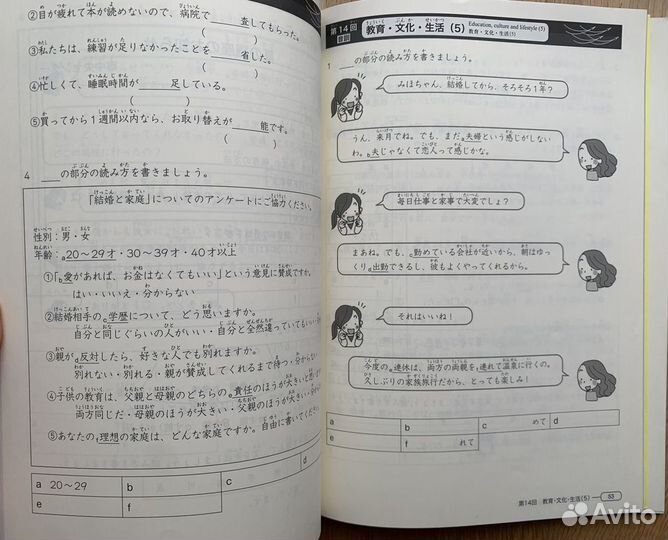 ②目が疲れて本が読めないので、病院で＿＿査してもらった。
(　　　)
③私たちは、練習が足りなかったことを＿＿省した。
(　　　)
④忙しくて、睡眠時間が＿＿足している。
(　　　)
⑤買ってから1週間以内なら、お取り替えが＿＿能です。
(　　　)
4 ＿＿の部分の読み方を書きましょう。
「結婚と家庭」についてのアンケートにご協力ください。
性別：男・女
年齢：a20～29才・30～39才・40才以上
①「b愛があれば、お金はなくてもいい」という意見に賛成ですか。
はい・いいえ・分からない
②結婚相手のc学歴について、どう思いますか。
自分と同じぐらいの人がいい・自分と全然違っていてもいい・
③親がd反対したら、好きな人でも別れますか。
別れない・別れる・親が賛成してくれるまで待つ・分からない
④子供の教育は、父親と母親のどちらのe責任のほうが大きいと思いますか
両方同じだ・母親のほうが大きい・父親のほうが大きい・分
⑤あなたのf理想の家庭は、どんな家庭ですか。自由に書いてください
a 20～29
b
c
d
e
f
第14回
教育・文化・生活（5）
Education, culture and lifestyle (5)
教育・文化・生活（5）
1 ＿＿の部分の読み方を書きましょう。
みほちゃん、結婚してから、そろそろ1年？
うん、来月でね。でも、まだa夫婦という感じがしない
わ。b夫じゃなくて恋人って感じかな。
毎日仕事と家事で大変でしょ？
まあね。でも、c勤めている会社が近いから、朝はゆっ
くりd出勤できるし、彼もよくやってくれるから。
それはいいね！
今度のe連休は、両方の両親をf連れて温泉に行くの。
久しぶりの家族旅行だから、とっても楽しみ！
a
b
c めて
d
e
f れて
第14回 教育・文化・生活（5） 53
Avito